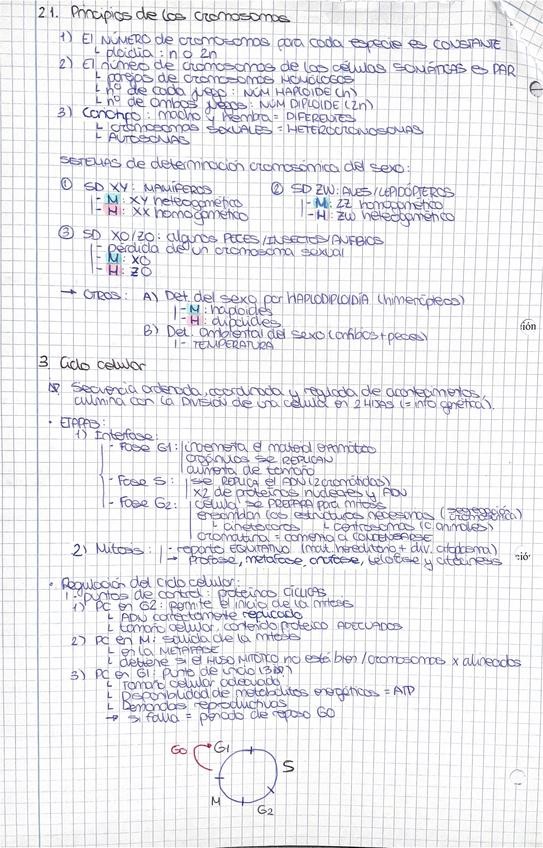 2.1. Principios de los cromosomas
1) El NÚMERO de cromosomas para cada especie es CONSTANTE
L ploidia: n o 2n
2) El número de cromosomas de las células SOMÁTICAS es PAR
L parejas de cromosomas HOMÓLOGOS
L nº de cada juego: NÚM HAPLOIDE (n)
L nº de ambos juegos: NÚM DIPLOIDE (2n)
3) Cariotipo: macho y hembra = DIFERENTES
L cromosomas SEXUALES = HETEROCROMOSOMAS
L AUTOSOMAS
SISTEMAS de determinación cromosómica del sexo:
① SD XY: MAMÍFEROS
|- M: XY heterogamético
|- H: XX homogamético
② SD ZW: AVES/LEPIDÓPTEROS
|- M: ZZ homogamético
|- H: ZW heterogamético
③ SD XO/ZO: algunos PECES/INSECTOS/ANFIBIOS
|- pérdida de un cromosoma sexual
|- M: XO
|- H: ZO
→ OTROS: A) Det. del sexo por HAPLODIPLOIDÍA (himenópteros)
|- M: haploides
|- H: diploides
B) Det. ambiental del sexo (anfibios + peces)
|- TEMPERATURA
ión
3. Ciclo celular
Secuencia ordenada, coordinada y regulada de acontecimientos,
culmina con la DIVISIÓN de una célula en 2 HIJAS (= info genética).
• ETAPAS:
1) Interfase:
- Fase G1: incrementa el material enzimático
orgánulos se REPLICAN
aumento de tamaño
- Fase S: se REPLICA el ADN (2 cromátidas)
x2 de proteínas nucleares y ADN
- Fase G2: célula se PREPARA para mitosis
ensamblan las estructuras necesarias
L cinetocoros L centrosomas (C. animales)
cromatina = comienza a CONDENSARSE
2) Mitosis: |- reparto EQUITATIVO (mat. hereditario + div. citoplasma)
→ Profase, metafase, anafase, telofase y citocinesis
ió
• Regulación del ciclo celular:
|- puntos de control: proteínas cíclicas
1) PC en G2: permite el inicio de la mitosis
L ADN correctamente replicado
L tamaño celular, contenido proteico ADECUADOS
2) PC en M: salida de la mitosis
L en la METAFASE
L detiene si el HUSO MITÓTICO no está bien / cromosomas x alineados
3) PC en G1: punto de inicio
L Tamaño celular adecuado
L Disponibilidad de metabolitos energéticos = ATP
L Demandas reproductivas
→ si falla = periodo de reposo G0
G0
G1
S
M
G2